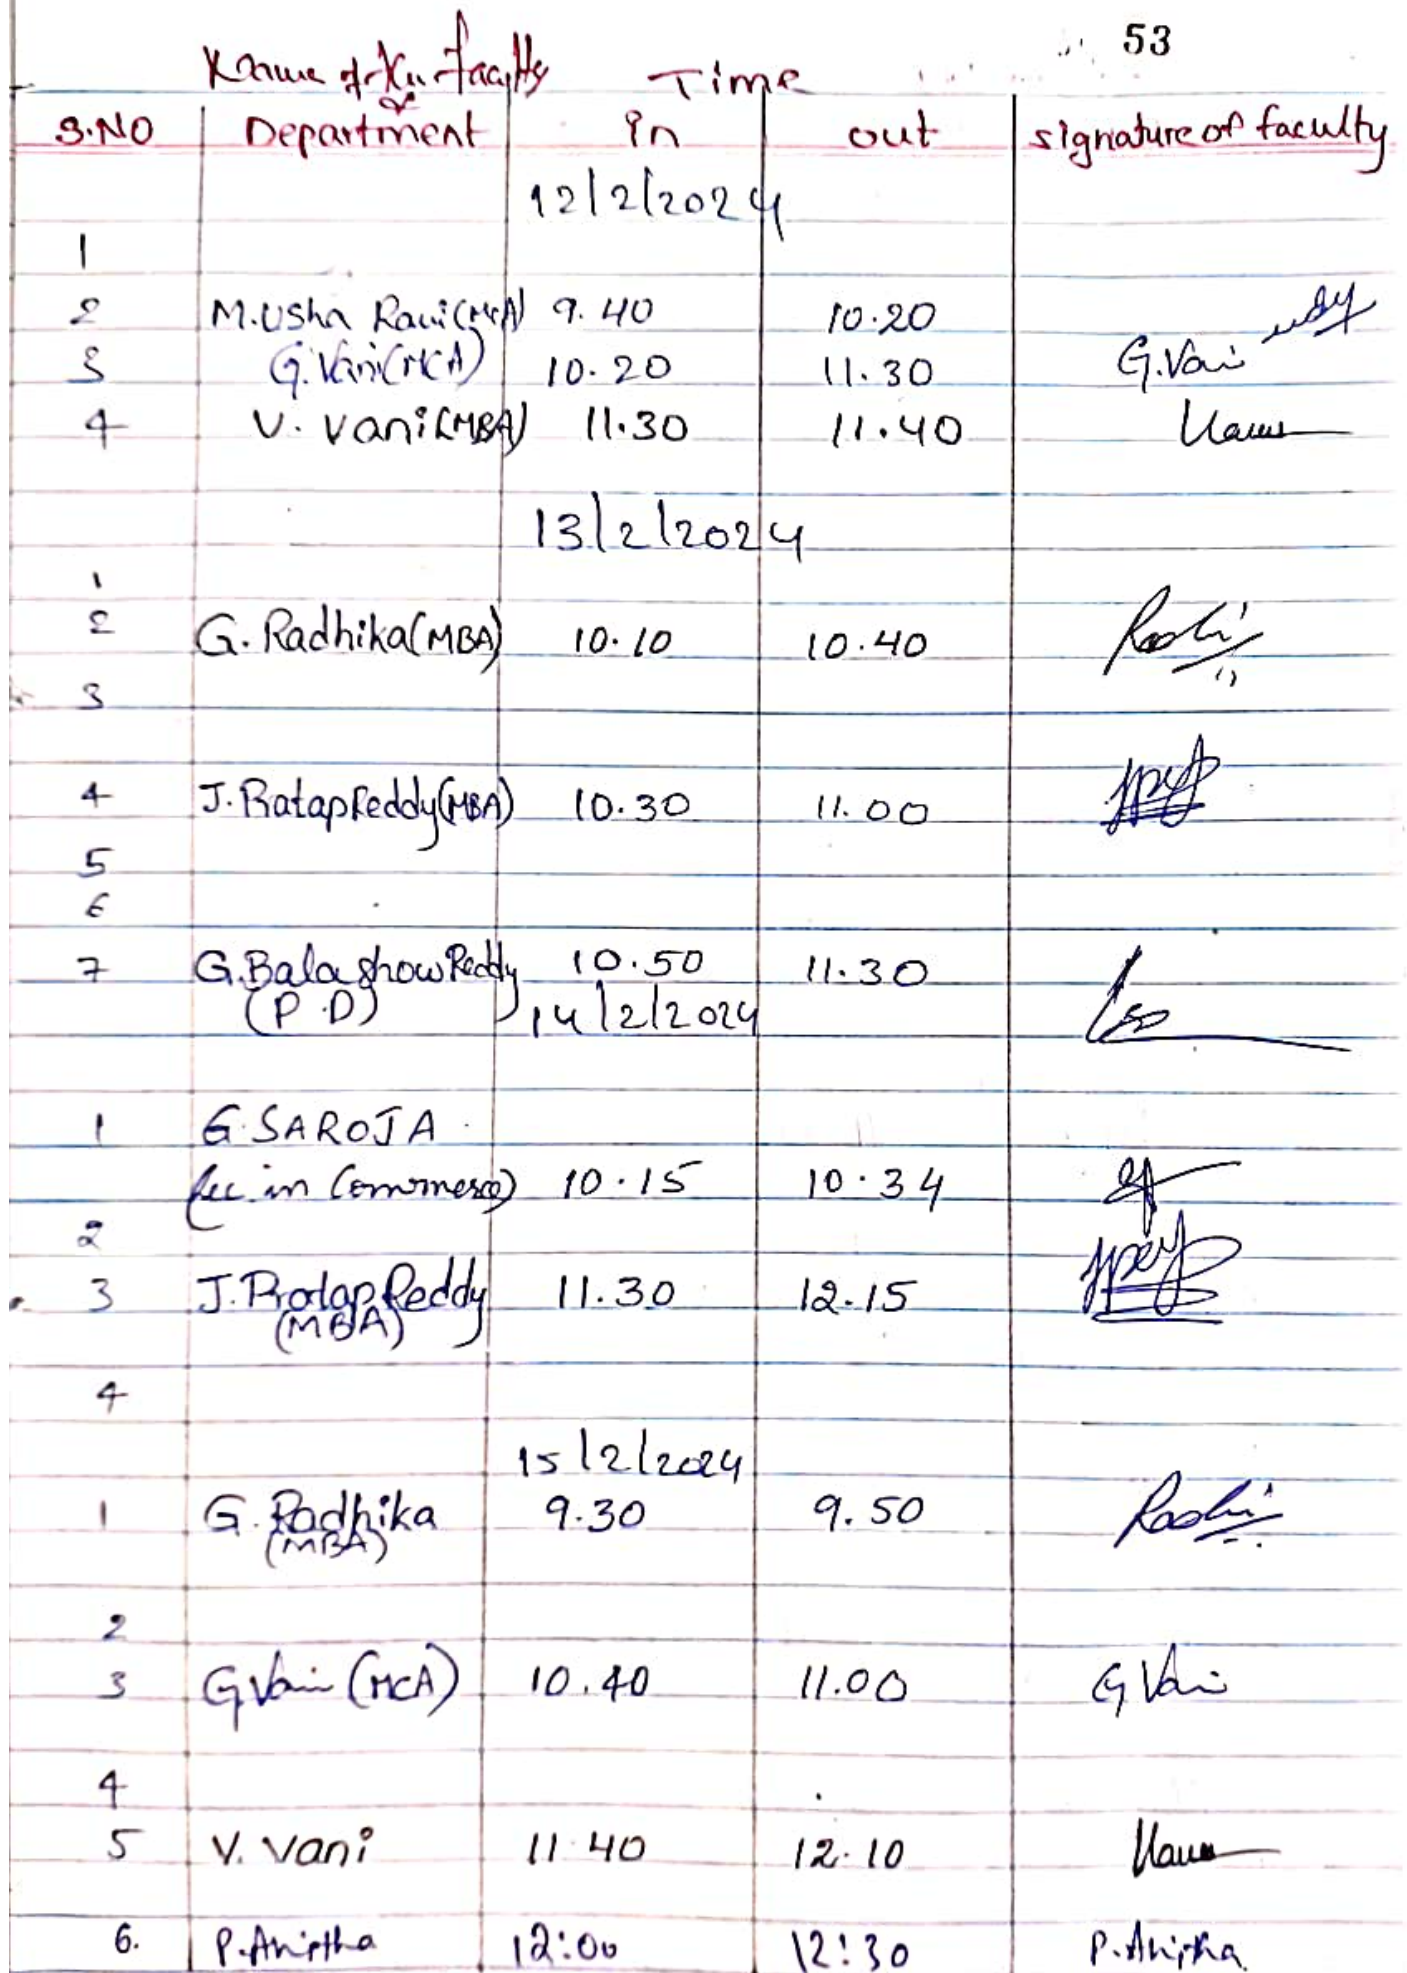 53
Name of the faculty Time
&
S.NO Department In out signature of faculty
12/2/2024
1
2 M.Usha Rani (MCA) 9.40 10.20
3 G.Vani (MCA) 10.20 11.30 G.Vani
4 V. Vani (MBA) 11.30 11.40
13/2/2024
1
2 G. Radhika (MBA) 10.10 10.40
3
4 J. Pratap Reddy (MBA) 10.30 11.00
5
6
7 G. Bala Reddy 10.50 11.30
(P.D) 14/2/2024
1 G. SAROJA
Lec. in Commerce) 10.15 10.34
2
3 J. Pratap Reddy 11.30 12.15
(MBA)
4
15/2/2024
1 G. Radhika 9.30 9.50
(MBA)
2
3 G Vani (MCA) 10.40 11.00 G Vani
4
5 V. Vani 11 40 12.10
6. 12:00 12:30